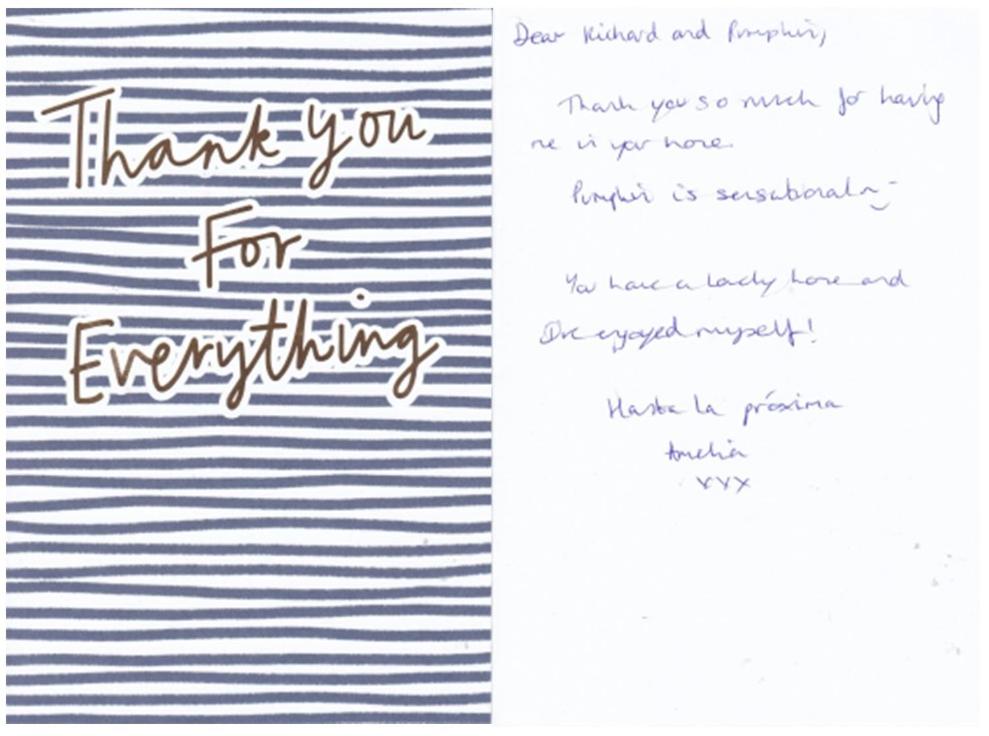 Thank you
For
Everything
Dear Richard and Pumpkin,
Thank you so much for having
me in your home.
Pumpkin is sensational
You have a lovely home and
I've enjoyed myself!
Hasta la próxima
Amelia
xxx